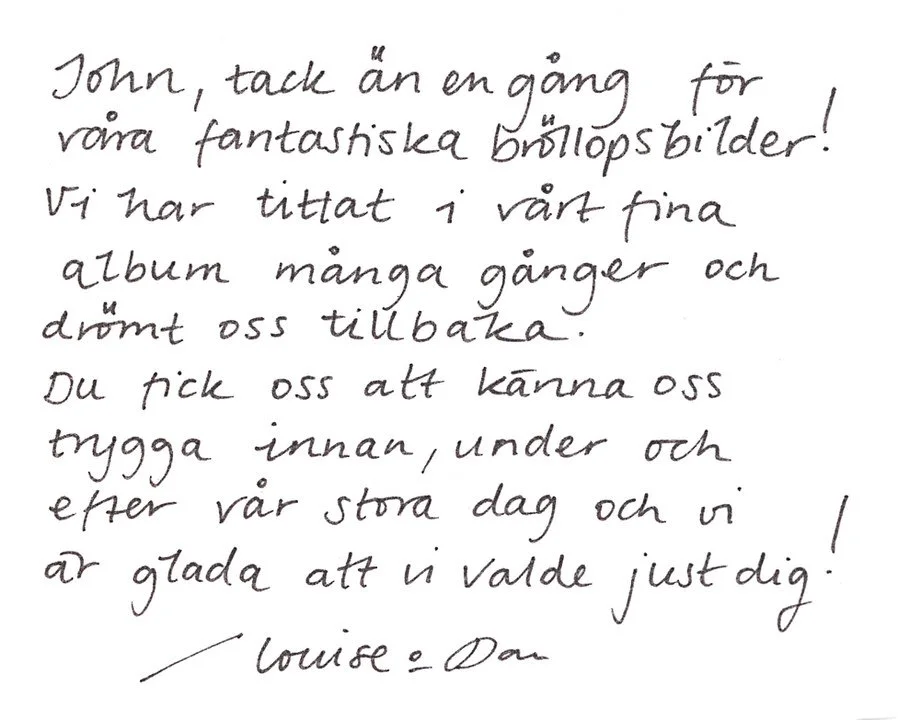 John, tack än en gång för
våra fantastiska bröllopsbilder!
Vi har tittat i vårt fina
album många gånger och
drömt oss tillbaka.
Du fick oss att känna oss
trygga innan, under och
efter vår stora dag och vi
är glada att vi valde just dig!
/ Louise o Dan